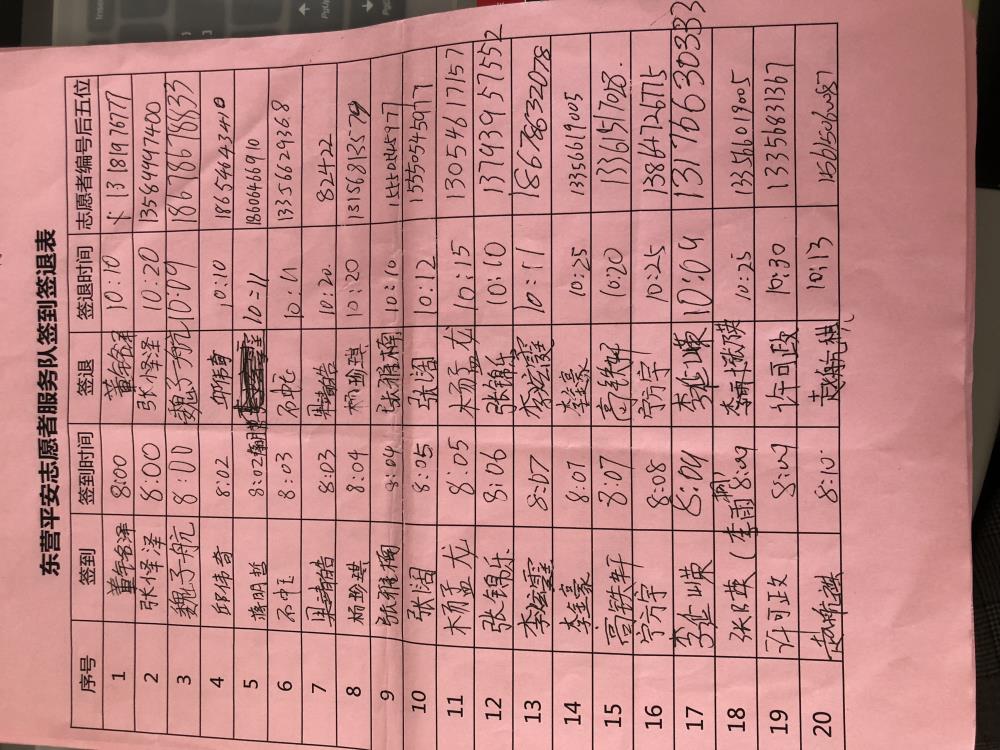 东营平安志愿者服务队签到签退表
序号 签到 签到时间 签退 签退时间 志愿者编号后五位
1 8:00 10:10 13181976777
2 张怿泽 8:00 张怿泽 10:20 13584497400
3 魏子航 8:00 魏子航 10:09 18678678833
4 邱伟奇 8:02 邱伟奇 10:10 18654643440
5 蒋明哲 8:02 10:11 18606466910
6 8:03 10:11 13356629368
7 8:03 10:20 82422
8 杨珍琪 8:04 杨珍琪 10:20 13156813579
9 张雅梅 8:04 张雅梅 10:10
10 张阔 8:05 张阔 10:12 15505454977
11 杨孟龙 8:05 杨孟龙 10:15 13054617157
12 张锦乐 8:06 张锦乐 10:10 13793957552
13 8:07 10:11 18678632078
14 李豪 8:07 李豪 10:25 13356619005
15 高铁轩 8:07 高铁轩 10:20 13361517028.
16 宁方宇 8:08 宁方宇 10:25 13864726715
17 8:09 10:09 13176630333
18 8:09 10:25 13356619005
19 许可政 8:09 许可政 10:30 13356831367
20 8:10 10:13 15615056087